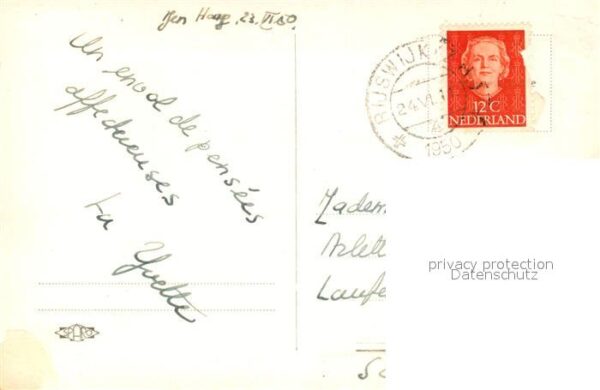 Den Haag, 23.VI.50.
Un envol de pensées
affectueuses
La Yvette
RIJSWIJK
24.VI.
1950
12 C
NEDERLAND
Madem
Arlett
Laufe
privacy protection
Datenschutz